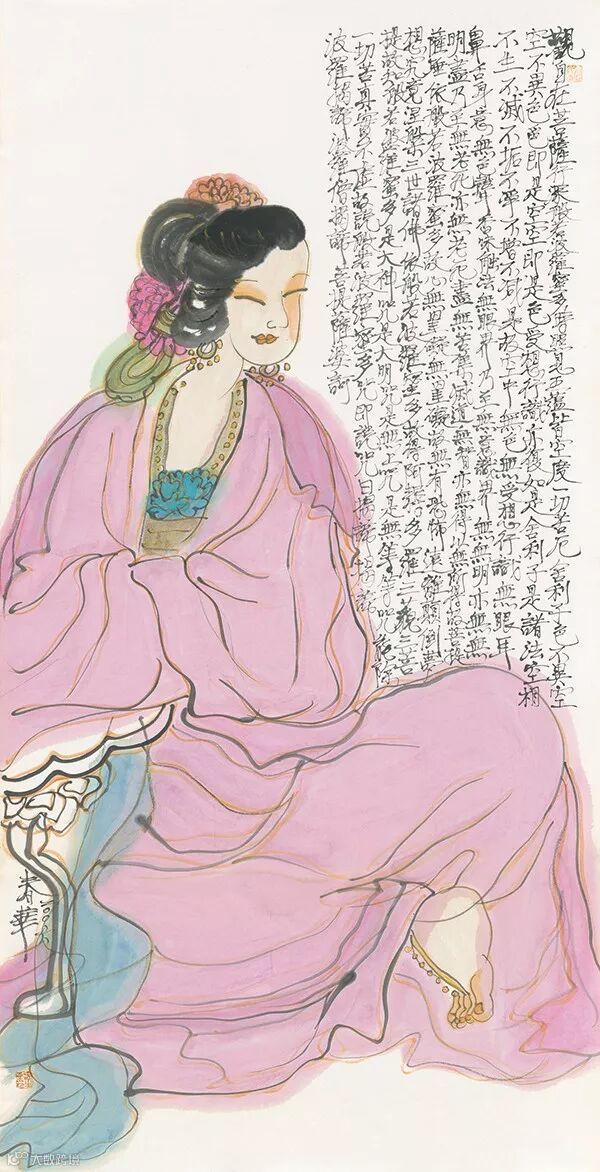 觀自在菩薩行深般若波羅蜜多時照見五蘊皆空度一切苦厄舍利子色不異空
空不異色色即是空空即是色受想行識亦復如是舍利子是諸法空相
不生不滅不垢不淨不增不減是故空中無色無受想行識無眼耳
鼻舌身意無色聲香味觸法無眼界乃至無意識界無無明亦無無
明盡乃至無老死亦無老死盡無苦集滅道無智亦無得以無所得故菩提
薩埵依般若波羅蜜多故心無罣礙無罣礙故無有恐怖遠離顛倒夢
想究竟涅槃三世諸佛依般若波羅蜜多故得阿耨多羅三藐三菩
提故知般若波羅蜜多是大神咒是大明咒是無上咒是無等等咒能除
一切苦真實不虛故說般若波羅蜜多咒即說咒曰揭諦揭諦
波羅揭諦波羅僧揭諦菩提薩婆訶
春華
大数跨境